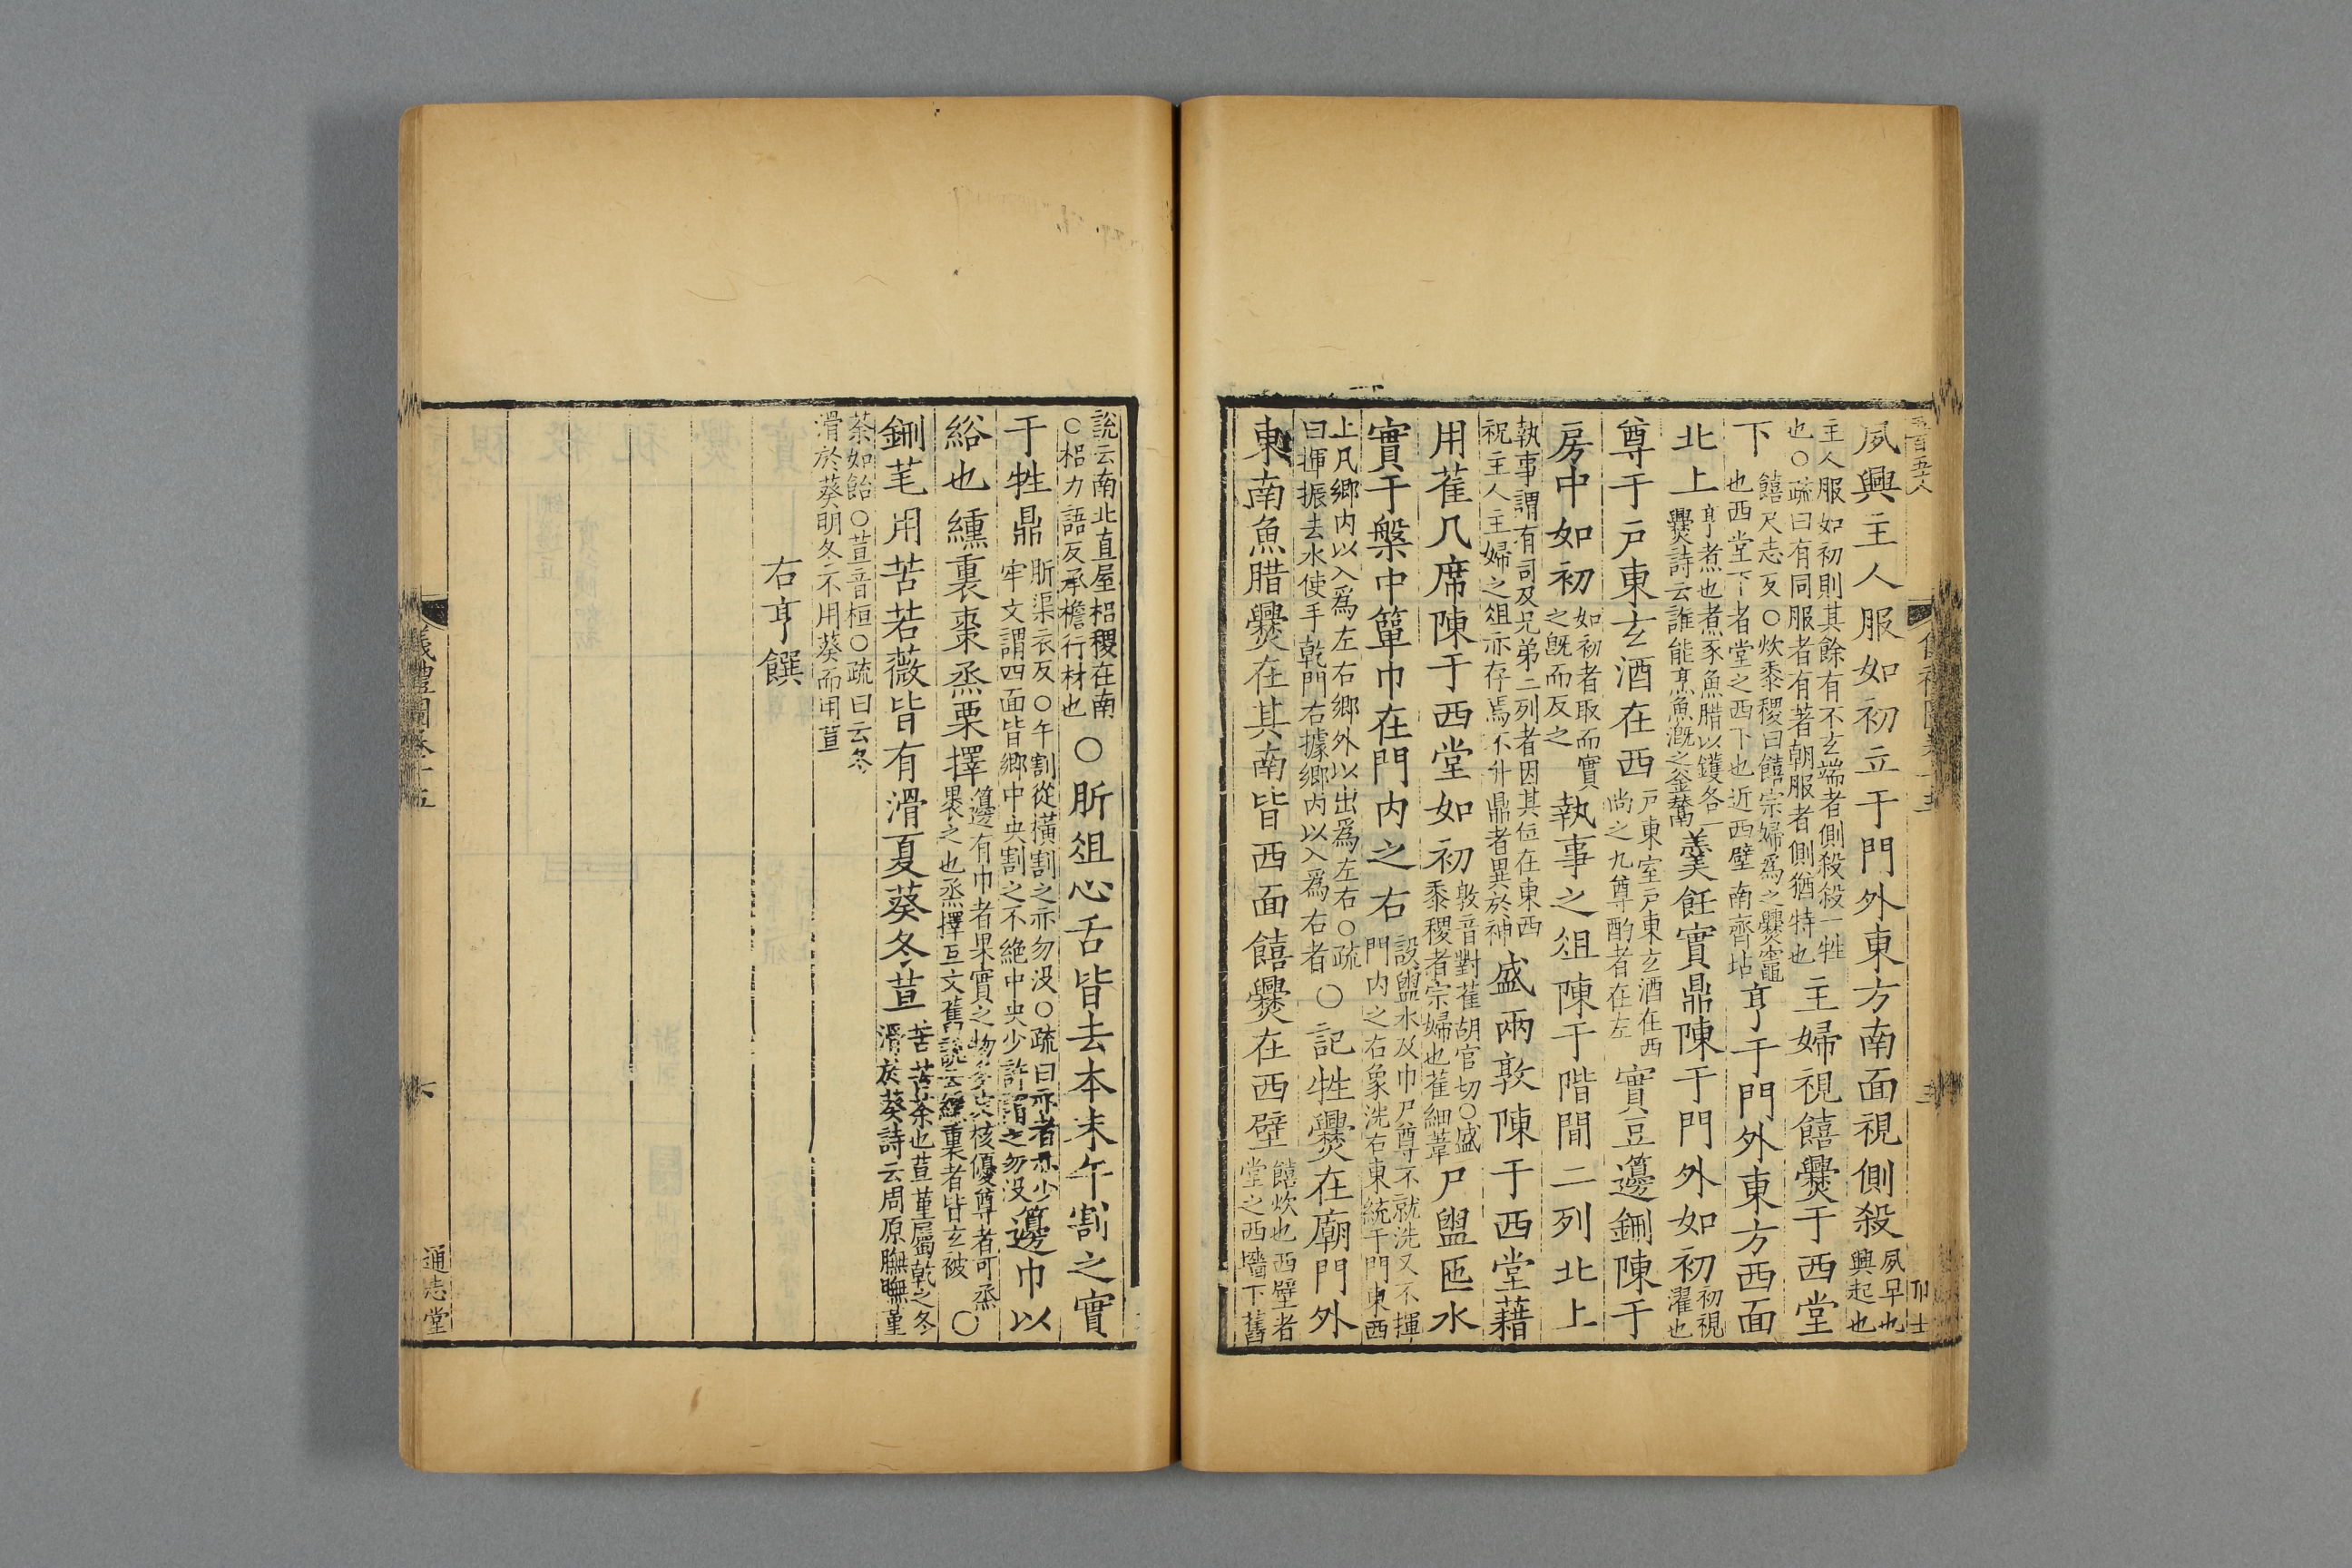 夙興主人服如初立于門外東方南面視側殺夙早也興起也
主人服如初則其餘有不玄端者側殺殺一牲也○疏曰有同服者有著朝服者側猶特也主婦視饎爨于西堂
下饎尺志反○炊黍稷曰饎宗婦爲之爨竈也西堂下者堂之西下也近西壁南齊坫亨于門外東方西面
北上亨煮也煮豕魚腊以鑊各一爨詩云誰能亨魚漑之釜鬵羹飪實鼎陳于門外如初初視濯也
尊于戸東玄酒在西戸東室戸東玄酒在西尚之凡尊酌者在左實豆籩鉶陳于
房中如初如初者取而實之旣而反之執事之俎陳于階間二列北上
執事謂有司及兄弟二列者因其位在東西祝主人主婦之俎亦存焉不升鼎者異於神盛兩敦陳于西堂藉
用萑几席陳于西堂如初敦音對萑胡官切○盛黍稷者宗婦也萑細葦尸盥匜水
實于槃中簞巾在門内之右設盥水及巾尸尊不就洗又不揮門内之右象洗右東統于門東西
上凡鄉内以入爲左右鄉外以出爲左右○疏曰揮振去水使手乾門右據鄉内以入爲右者○記牲爨在廟門外
東南魚腊爨在其南皆西面饎爨在西壁饎炊也西壁者堂之西墻下舊
說云南北直屋梠稷在南○梠力語反承檐行材也○肵俎心舌皆去本末午割之實
于牲鼎肵渠衣反○午割從橫割之亦勿没○疏曰亦者亦少牢文謂四面皆鄉中央割之不絶中央少許謂之勿没籩巾以
綌也纁裏棗烝栗擇籩有巾者果實之物多皮核優尊者可烝裹之也烝擇互文舊說云纁裏者皆玄被○
鉶芼用苦若薇皆有滑夏葵冬荁苦苦荼也荁堇屬乾之冬滑於葵詩云周原膴膴堇
荼如飴○荁音桓○疏曰云冬滑於葵明冬不用葵而用荁
右亨饌
儀禮圖卷十五
六
通志堂